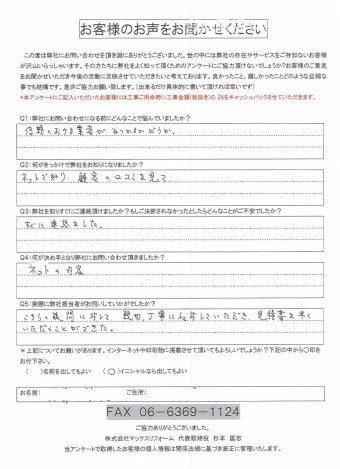 お客様のお声をお聞かせください
この度は弊社にお問い合わせを頂き誠にありがとうございました。世の中には弊社の存在やサービスをご存知ないお客様
が沢山いらっしゃいます。その方たちに弊社をよく知って頂くためのアンケートにご協力頂けないでしょうか？お客様のご意見
をお聞かせいただき今後の活動に反映させていただきたいと考えております。良かったこと、嬉しかったことどのような些細な
事でも結構です。是非ご協力お願い致します。（出来るだけ具体的に書いて頂ければ幸いです）
*本アンケートにご記入いただいたお客様には工事ご用命時に工事金額（税抜き）の2%をキャッシュバックさせていただきます。
Q1：弊社にお問い合わせになる前にどんなことで悩んでいましたか？
信頼のおける業者がみつかるかどうか.
Q2：何がきっかけで弊社をお知りになりましたか？
ネットで知り 顧客の口コミを見て
Q3：弊社を知りすぐにご連絡頂けましたか？もしご決断されなかったとしたらどんなことがご不安でしたか？
すぐに連絡ました。
Q4：何が決め手となり弊社にお問い合わせ頂きましたか？
ネットの内容
Q5：実際に弊社担当者がお伺いしていかがでしたか？
こちらの質問に対して 親切、丁寧に対応していただき、見積書も早く
いただくことができた。
＊上記についてお願いがあります。インターネットや印刷物に掲載させて頂いてもよろしいでしょうか？下記の中から〇印を
お付下さい。
（　）名前を出してもよい （〇）イニシャルなら出してもよい
お名前： ご住所：
FAX 06-6369-1124
ご協力ありがとうございました。
株式会社マックスリフォーム 代表取締役 杉本 匡志
当アンケートで取得したお客様の個人情報は関係法規に基づき厳正に管理いたします。